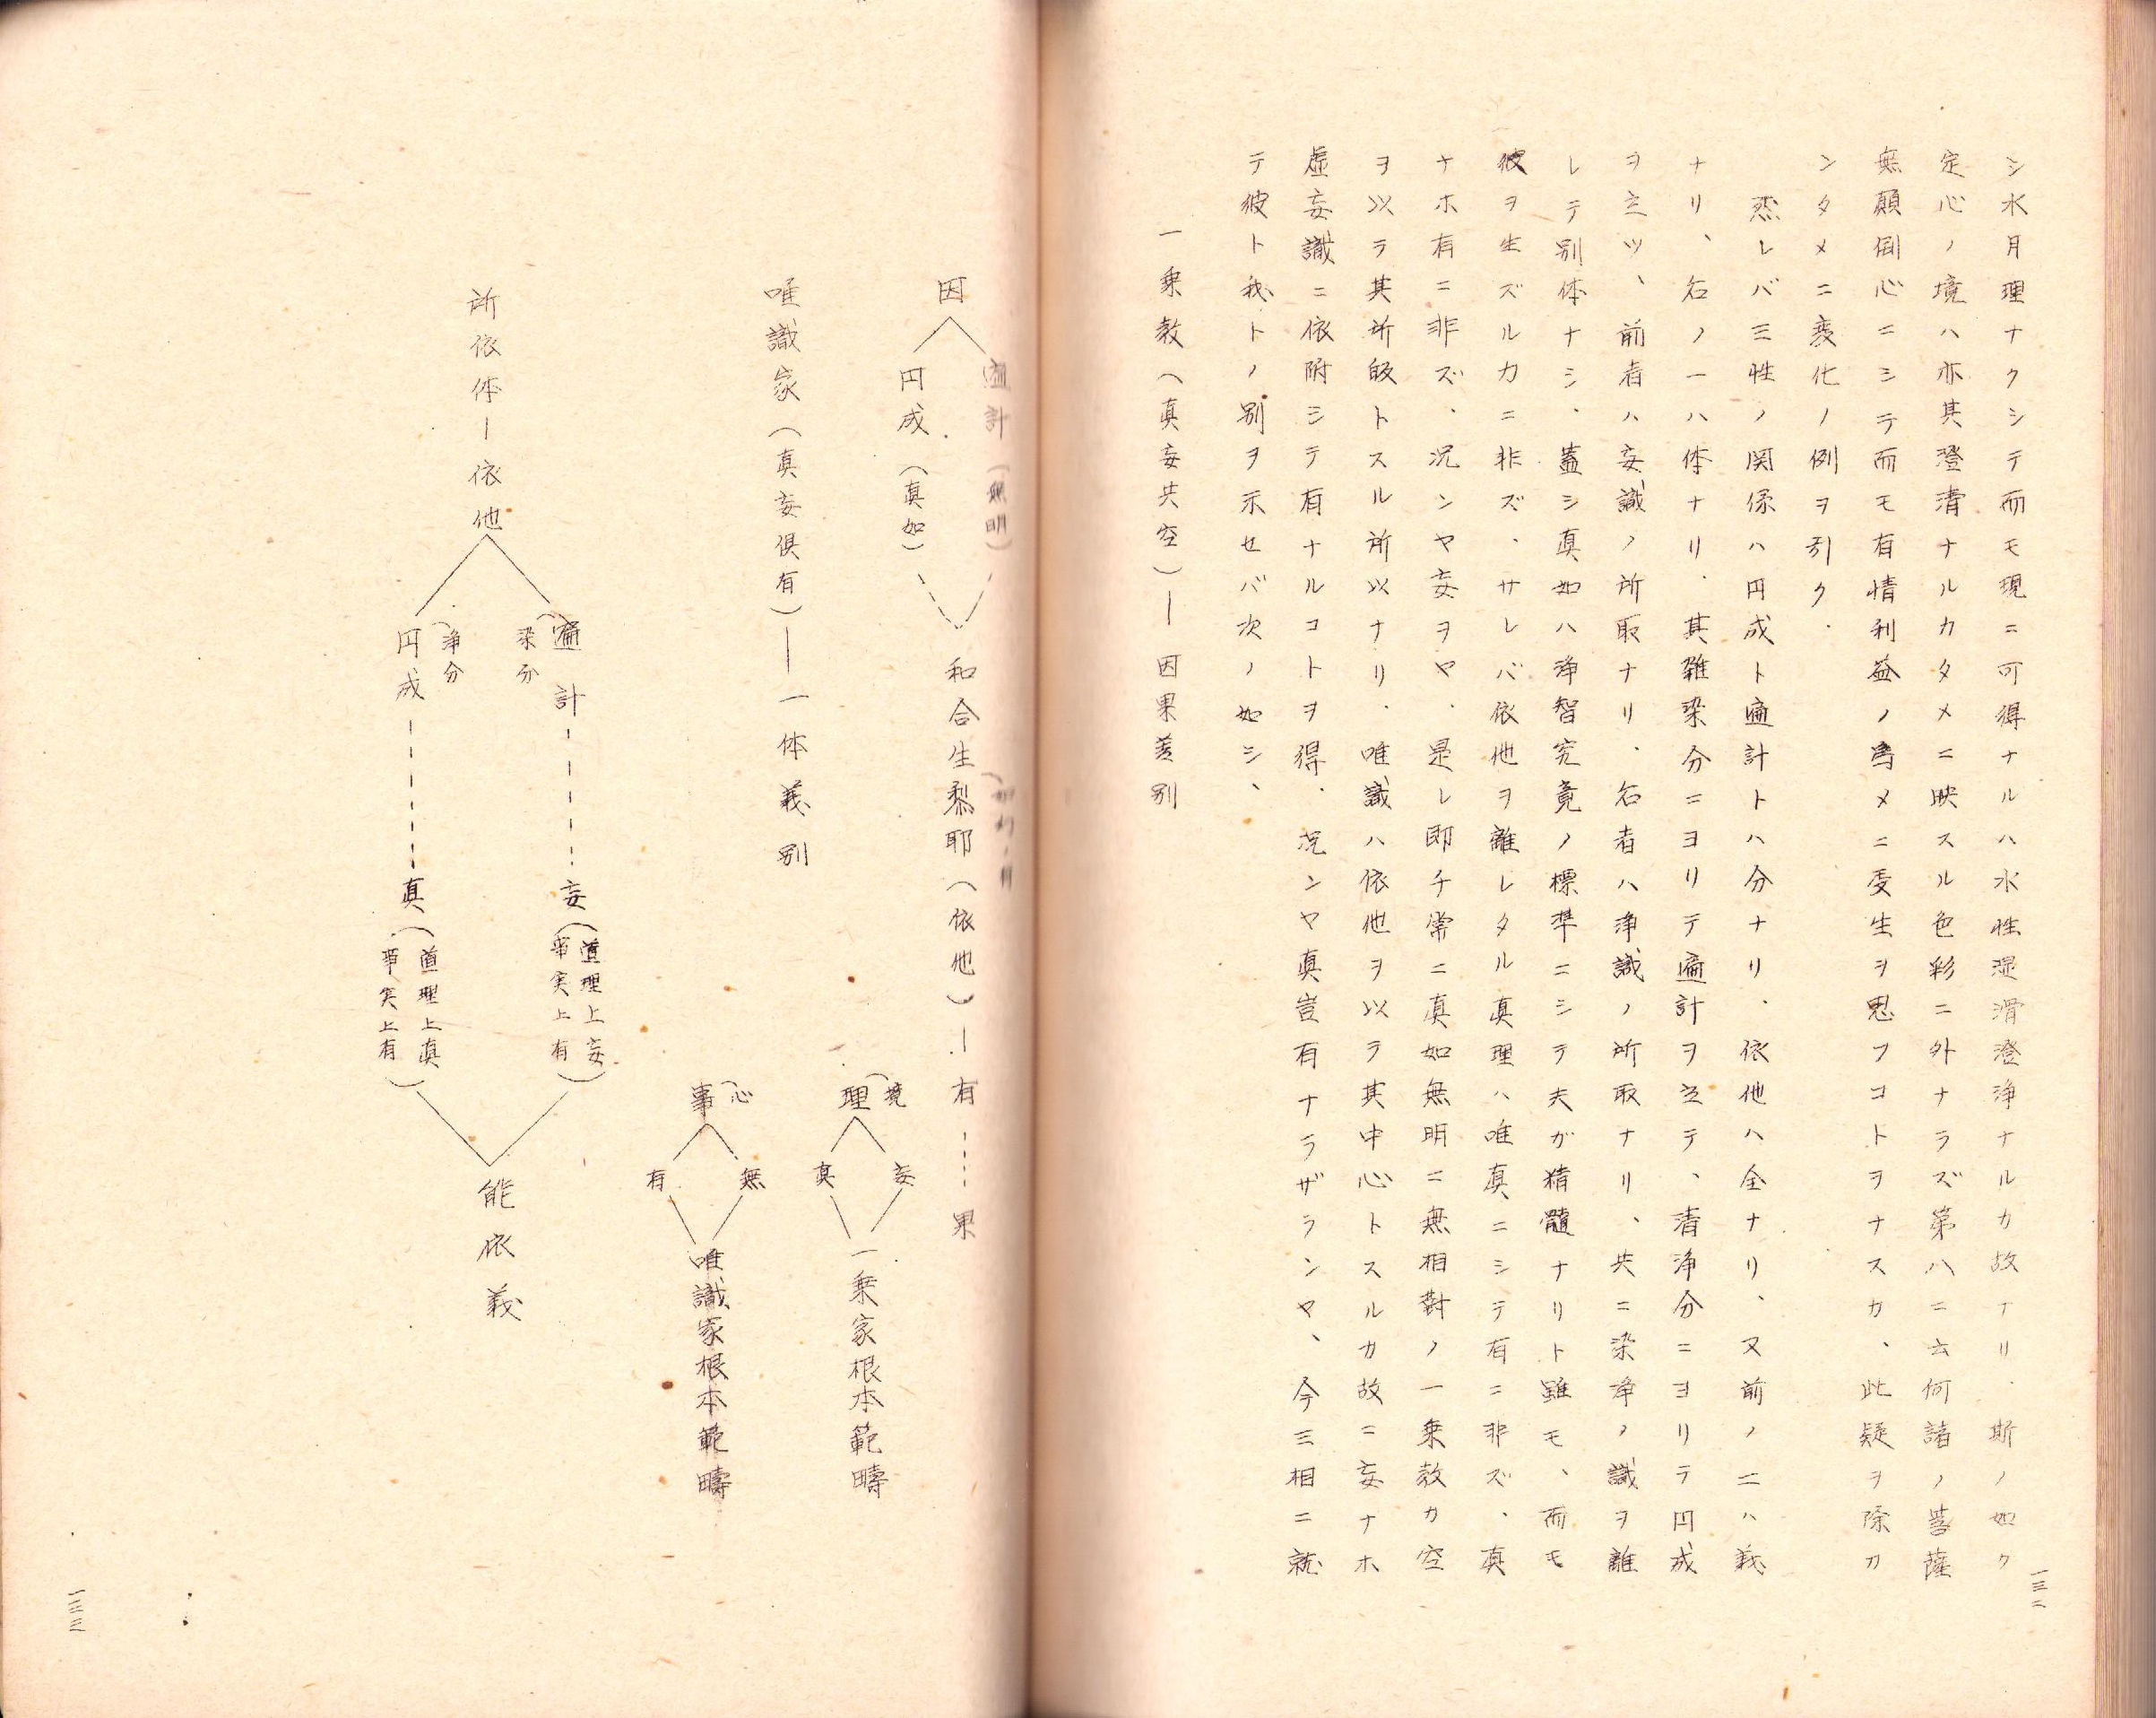 シ水月理ナクシテ而モ現ニ可得ナルハ水性湿滑澄浄ナルカ故ナリ、斯ノ如ク
定心ノ境ハ亦其澄清ナルカタメニ映スル色彩ニ外ナラズ第八ニ云何諸ノ菩薩
無顛倒心ニシテ而モ有情利益ノ為メニ受生ヲ思フコトヲナスカ、此疑ヲ除カ
ンタメニ変化ノ例ヲ引ク．
然レバ三性ノ関係ハ円成ト遍計トハ分ナリ、依他ハ全ナリ、又前ノ二ハ義
ナリ、右ノ一ハ体ナリ．其雑染分ニヨリテ遍計ヲ立テ、清浄分ニヨリテ円成
ヲ立ツ、前者ハ妄識ノ所取ナリ、右者ハ浄識ノ所取ナリ、共ニ染浄ノ識ヲ離
レテ別体ナシ、蓋シ真如ハ浄智究竟ノ標準ニシテ夫ガ精髄ナリト雖モ、而モ
彼ヲ生ズルカニ非ズ、サレバ依他ヲ離レタル真理ハ唯真ニシテ有ニ非ズ、真
ナホ有ニ非ズ、況ンヤ妄ヲヤ、是レ即チ常ニ真如無明ニ無相対ノ一乗教カ空
ヲ以テ其所皈トスル所以ナリ．唯識ハ依他ヲ以テ其中心トスルカ故ニ妄ナホ
虚妄識ニ依附シテ有ナルコトヲ得、況ンヤ真豈有ナラザランヤ、今三相ニ就
テ彼ト我トノ別ヲ示セバ次ノ如シ、
一乗教（真妄共空）―因果差別
一三二
因
遍計（無明）
円成（真如）
和合生黎耶（依他）―有……果
境
理
妄
真
一乗家根本範疇
心
事
無
有
唯識家根本範疇
唯識家（真妄倶有）――一体義別
所依体―依他
遍計
染分
妄（道理上妄
事実上有）
浄分
円成
真（道理上真
事実上有）
能依義
一三三